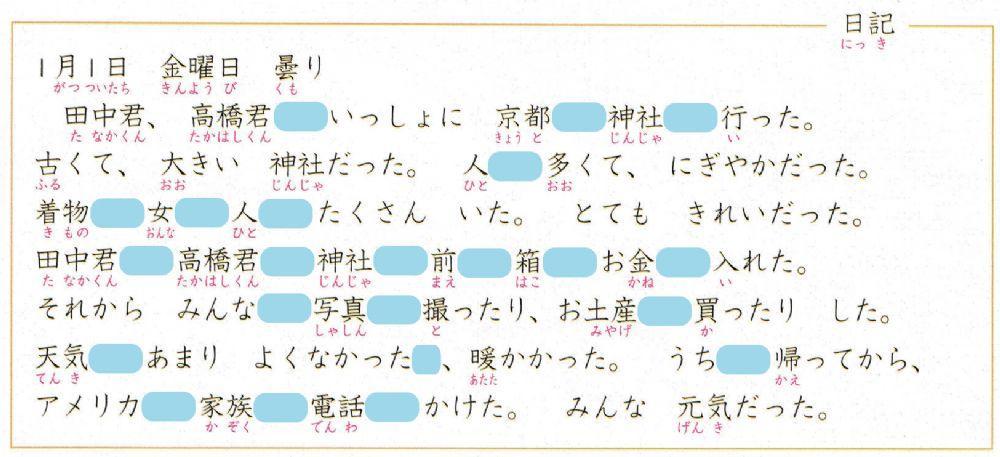 日記
にっき
1月1日　金曜日　曇り
がつ ついたち　きんようび　くも
田中君、高橋君　いっしょに　京都　神社　行った。
たなかくん　たかはしくん　きょうと　じんじゃ　い
古くて、大きい　神社だった。　人　多くて、にぎやかだった。
ふる　おお　じんじゃ　ひと　おお
着物　女　人　たくさん　いた。　とても　きれいだった。
きもの　おんな　ひと
田中君　高橋君　神社　前　箱　お金　入れた。
たなかくん　たかはしくん　じんじゃ　まえ　はこ　かね　い
それから　みんな　写真　撮ったり、お土産　買ったり　した。
しゃしん　と　みやげ　か
天気　あまり　よくなかった　、暖かかった。　うち　帰ってから、
てんき　あたた　かえ
アメリカ　家族　電話　かけた。　みんな　元気だった。
かぞく　でんわ　げんき